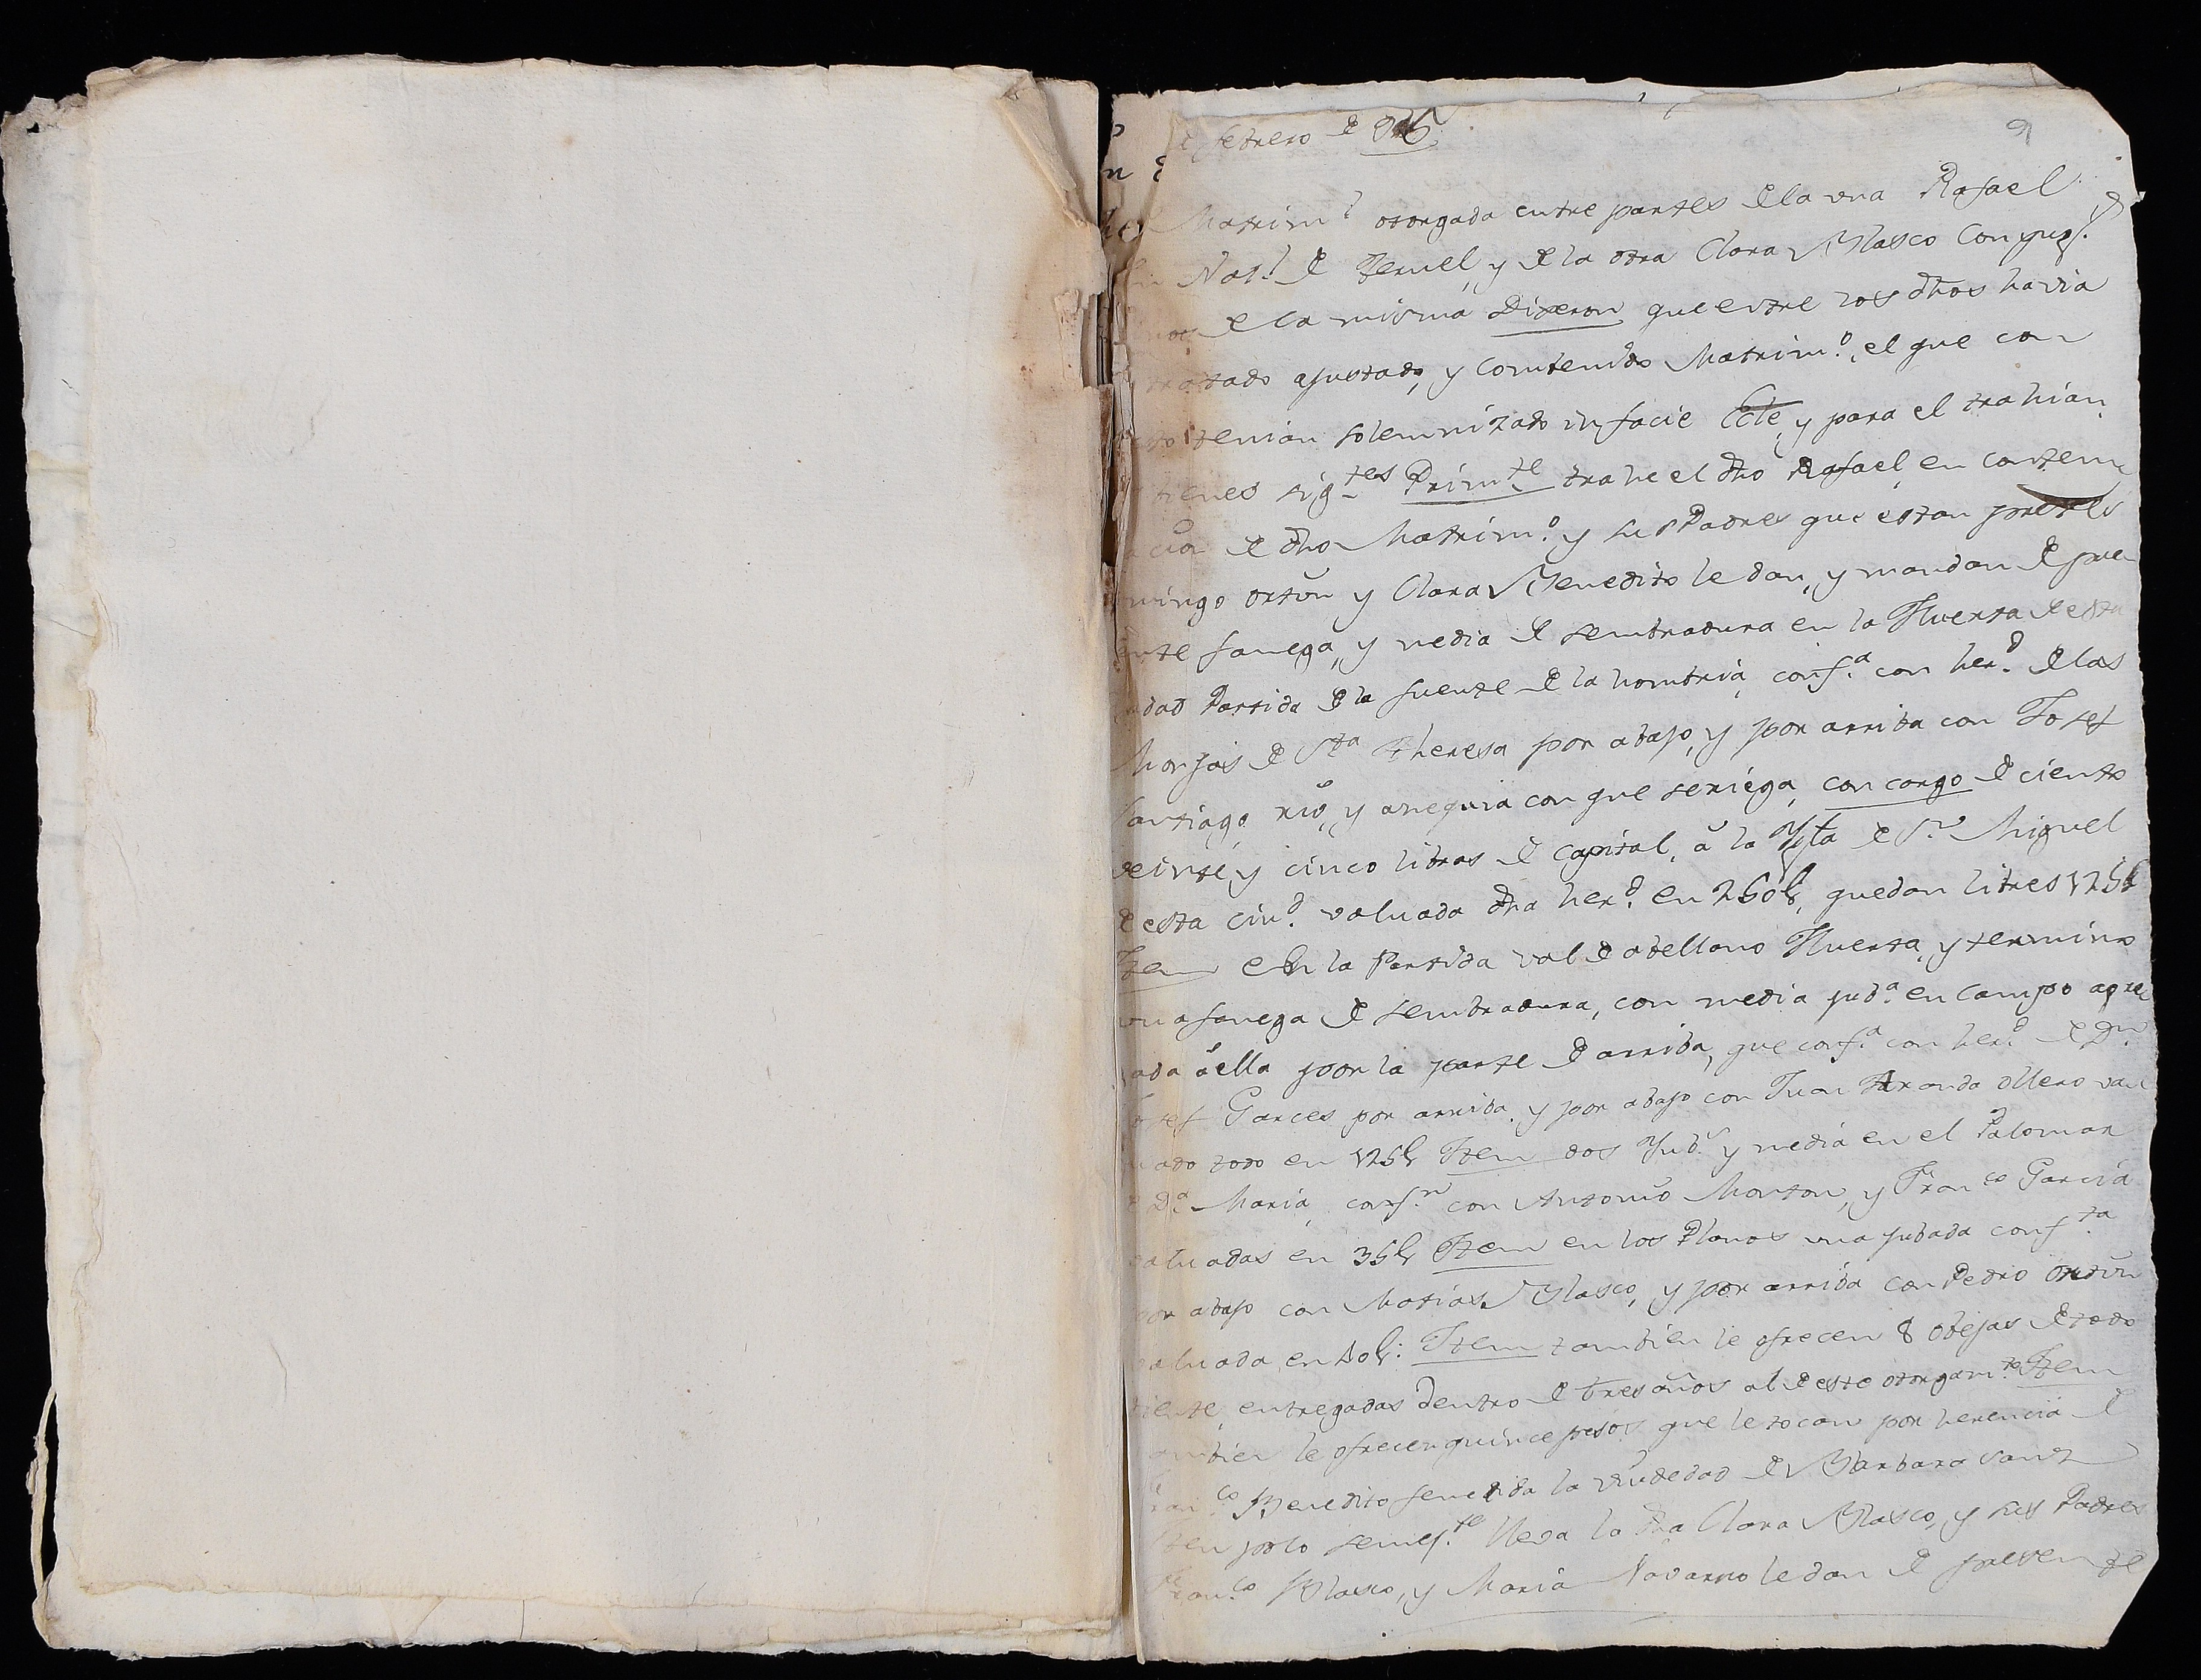 febrero de
9
Matrim.º otorgada entre partes de la una Rafael
Nat.l de Teruel, y de la otra Clara Blasco Conyug.s
de la misma Dixeron que entre los dhos havia
tratado ajustado, y contenido Matrim.º, el que con
tenian solemnizado in facie Ecle, y para el trahian
bienes sig.tes Prim.te trahe el dho Rafael, en contem
cion de dho Matrim.º y sus Padres que estan pretes
mingo ortun y Clara Benedito le dan, y mandan de pre
ente fanega, y media de sembradura en la Huerta de esta
udad Partida de la fuente de la hombria, conf.a con her.d de las
Monjas de Sta Theresa por abajo, y por arriba con Josef
Santiago, rio, y arequia con que se riega, con cargo de ciento
veinte, y cinco libras de capital, â la Ygla de S.n Miguel
de esta ciu.d valuada dha her.d en 250 l, quedan libres 125 l
Item en la Partida val de abellano Huerta, y termino
una fanega de sembradura, con media jub.a en campo agre
ada â ella por la parte de arriba, que conf.a con her.d de D.n
Josef Garces por arriba, y por abajo con Juan Aranda ollero va
uado todo en 125 l Item dos Jub.s y media en el Palomar
de D.a Maria, conf.n con Antonio Monton, y Fran.co Garcia
valuadas en 35 l Item en los Planos una jubada conf.ta
por abajo con Matias Blasco, y por arriba con Pedro Ortun
valuada en 40 l: Item tambien le ofrecen 8 obejas de todo
diente, entregadas dentro de tres años al de este otorgam.to Item
ambien le ofrecen quince pesos que le tocan por herencia de
Fran.co Benedito fenecida la viudedad de Barbara Sanz
Item por lo semej.te lleva la dha Clara Blasco, y sus Padres
Fran.co Blasco, y Maria Navarro le dan de presente